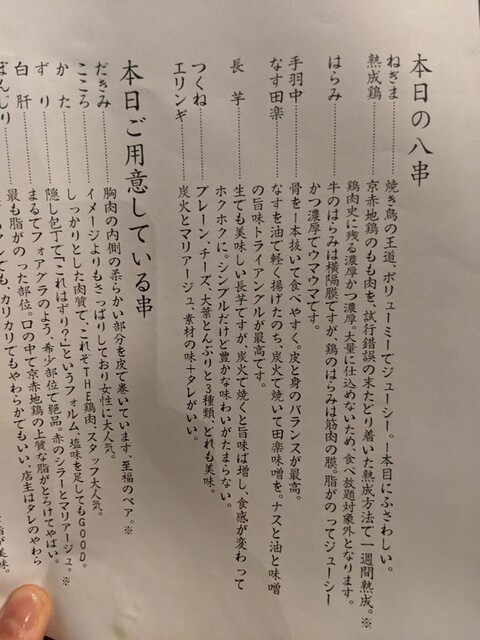 本日の八串
ねぎま…………焼き鳥の王道、ボリューミーでジューシー。一本目にふさわしい。
熟成鶏…………京赤地鶏のもも肉を、試行錯誤の末たどり着いた熟成方法で一週間熟成。※
鶏肉史に残る濃厚かつ濃厚。大量に仕込めないため、食べ放題対象外となります。
はらみ…………牛のはらみは横隔膜ですが、鶏のはらみは筋肉の膜。脂がのってジューシー
かつ濃厚でウマウマです。
手羽中…………骨を一本抜いて食べやすく。皮と身のバランスが最高。
なす田楽…………なすを油で軽く揚げたのち、炭火で焼いて田楽味噌を、ナスと油と味噌
の旨味トライアングルが最高です。
長芋…………生でも美味しい長芋ですが、炭火で焼くと旨味は増し、食感が変わって
ホクホクに。シンプルだけど豊かな味わいがたまらない。
つくね…………プレーン、チーズ、大葉とんぶりと3種類、どれも美味。
エリンギ…………炭火とマリアージュ、素材の味+タレがいい。
本日ご用意している串
だきみ…………胸肉の内側の柔らかい部分を皮で巻いています、至福のペア。※
こころ…………イメージよりもさっぱりしており女性に大人気。
かた…………しっかりとした肉質で、これぞTHE鶏肉、スタッフ大人気。
ずり…………隠し包丁で「これはずり?」というフォルム、塩味を足してもGOOD。
白肝…………まるでフォアグラのよう、希少部位で絶品。赤のシラーとマリアージュ。※
ぼんじり…………最も脂がのった部位。口の中で京赤地鶏の上質な脂がとろけてやばい。
でも、カリカリでもやわらかでもいい、店主はタレのやわら